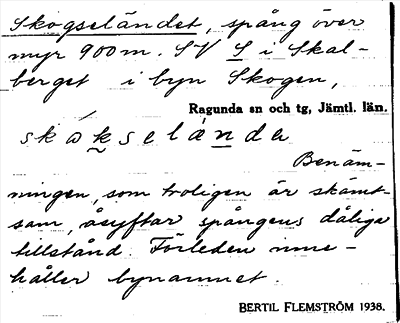 Skogseländet, spång över
myr 900 m. SV S i Skal-
berget i byn Skogen,
Ragunda sn och tg, Jämtl. län.
skákselände
Benäm-
ningen, som troligen är skämt-
sam, åsyftar spångens dåliga
tillstånd. Förleden inne-
håller bynamnet.
BERTIL FLEMSTRÖM 1938.